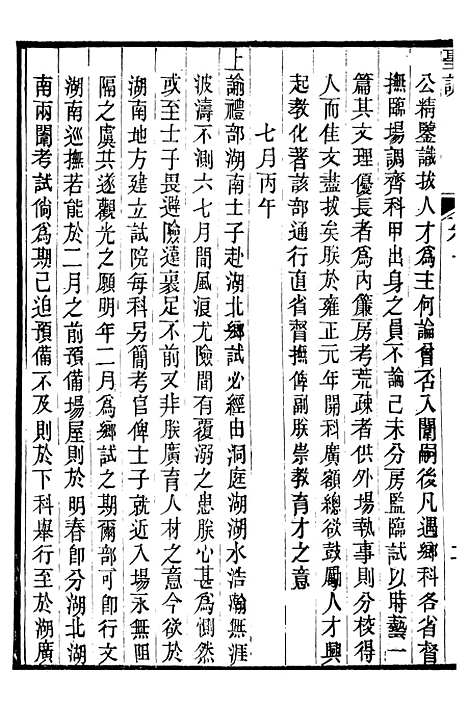 聖訓
公精鑒識拔人才爲主何論曾否入闈嗣後凡遇鄉科各省督
撫臨場調齊科甲出身之員不論已未分房監臨試以時藝一
篇其文理優長者爲內簾房考荒疎者供外場執事則分校得
人而佳文盡拔矣朕於雍正元年開科廣額總欲鼓勵人才興
起教化著該部通行直省督撫俾副朕崇教育才之意
七月丙午
上諭禮部湖南士子赴湖北鄉試必經由洞庭湖湖水浩瀚無涯
波濤不測六七月間風浪尤險間有覆溺之患朕心甚爲惻然
或至士子畏避險遠裹足不前又非朕廣育人材之意今欲於
湖南地方建立試院每科另簡考官俾士子就近入場永無阻
隔之虞共遂觀光之願明年二月爲鄉試之期爾部可卽行文
湖南巡撫若能於二月之前預備場屋則於明春卽分湖北湖
南兩闈考試倘爲期已迫預備不及則於下科舉行至於湖廣